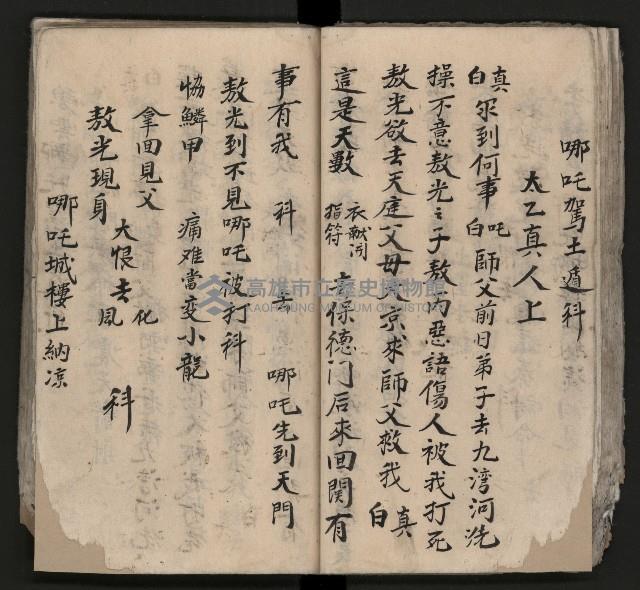 哪吒駕土遁科
太乙真人上
真白 尔到何事 吒白 師父前日弟子去九湾河洗
操不意敖光之子敖丙惡語傷人被我打死
敖光欲去天庭父母 求師父救我 真白
這是天數 衣献開指符 去保德门后來回関有
事有我 科 去 哪吒先到天門
敖光到不見哪吒被打科
恊鱗甲 痛难當变小龍
拿回見父 化
大恨去風 科
敖光現身
哪吒城樓上納凉
高雄市立歷史博物館
KAOHSIUNG MUSEUM OF HISTORY